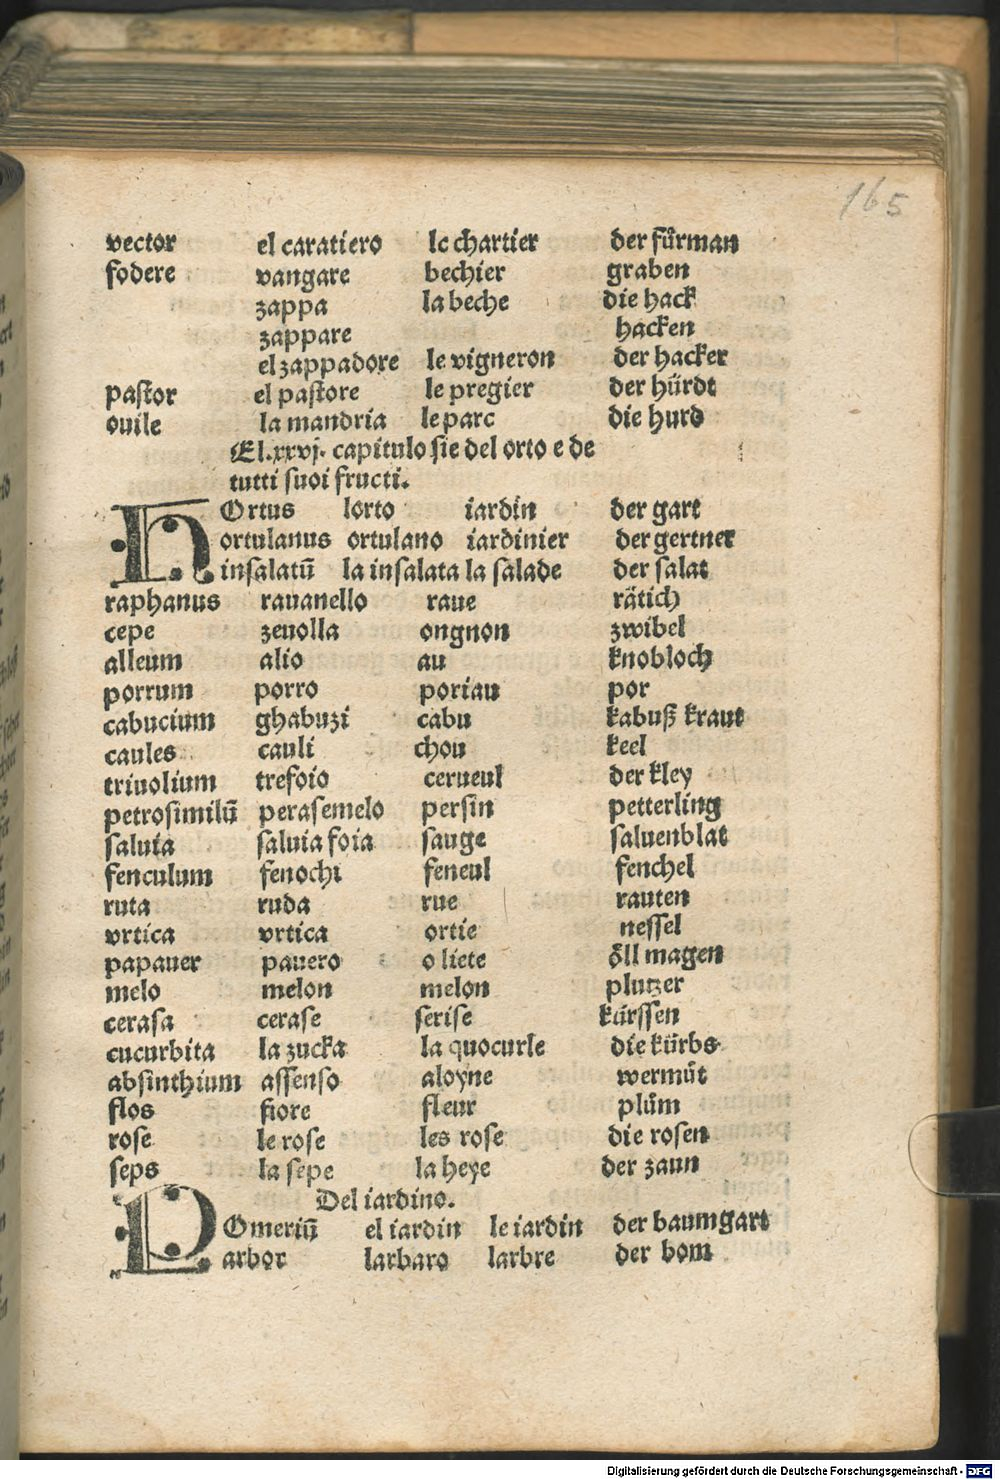 165
vector el caratiero le chartier der fůrman
fodere vangare bechier graben
zappa la beche die hack
zappare hacken
el zappadore le vigneron der hacker
pastor el pastore le pregier der hürdt
ouile la mandria le parc die hurd
El.xxvj. capitulo sie del orto e de
tutti suoi fructi.
HOrtus lorto iardin der gart
ortulanus ortulano iardinier der gertner
insalatū la insalata la salade der salat
raphanus rauanello raue rätich
cepe zeuolla ongnon zwibel
alleum alio au knobloch
porrum porro poriau por
cabucium ghabuzi cabu kabuß kraut
caules cauli chou keel
triuolium trefoio cerueul der kley
petrosimilū perasemelo persin petterling
saluia saluia foia sauge saluenblat
fenculum fenochi feneul fenchel
ruta ruda rue rauten
vrtica vrtica ortie nessel
papauer pauero o liete öll magen
melo melon melon plutzer
cerasa cerase serise kürssen
cucurbita la zucka la quocurle die kürbs
absinthium assenso aloyne wermůt
flos fiore fleur plům
rose le rose les rose die rosen
seps la sepe la heye der zaun
Del iardino.
POmeriū el iardin le iardin der baumgart
arbor larbaro larbre der bom
Digitalisierung gefördert durch die Deutsche Forschungsgemeinschaft - DFG